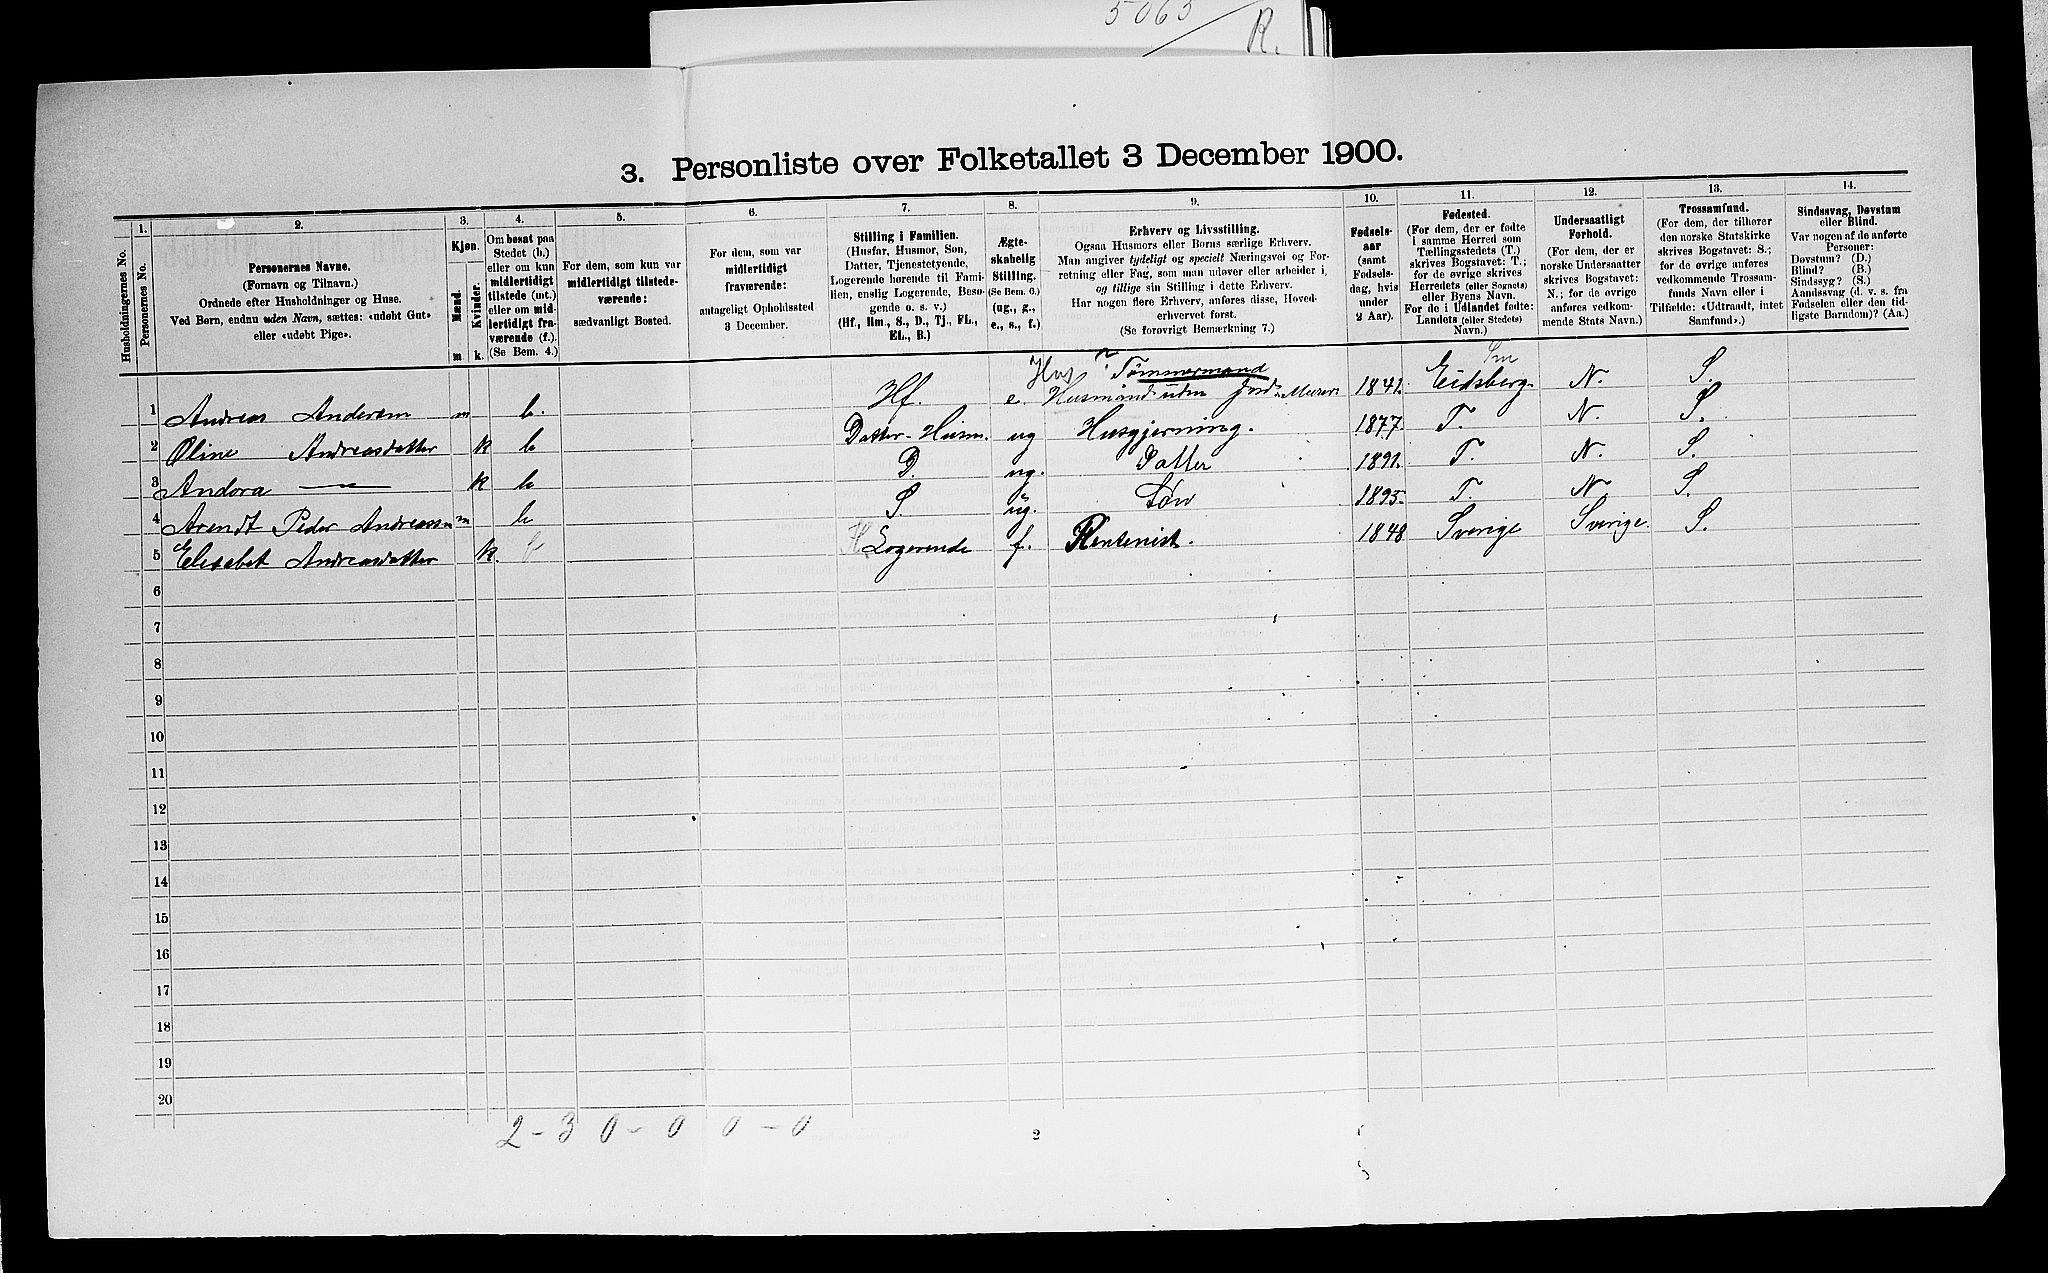 5063
R.
3. Personliste over Folketallet 3 December 1900.
1. 2. 3. 4. 5. 6. 7. 8. 9. 10. 11. 12. 13. 14.
Husholdningernes No.
Personernes No.
Personernes Navne.
(Fornavn og Tilnavn.)
Ordnede efter Husholdninger og Huse.
Ved Børn, endnu uden Navn, sættes: «udøbt Gut»
eller «udøbt Pige».
Kjøn.
Mænd.
Kvinder.
m k.
Om bosat paa
Stedet (b.)
eller om kun
midlertidigt
tilstede (mt.)
eller om mid-
lertidigt fra-
værende (f.).
(Se Bem. 4.)
For dem, som kun var
midlertidigt tilstede-
værende:
sædvanligt Bosted.
For dem, som var
midlertidigt
fraværende:
antageligt Opholdssted
3 December.
Stilling i Familien.
(Husfar, Husmor, Søn,
Datter, Tjenestetyende,
Logerende hørende til Fami-
lien, enslig Logerende, Besø-
gende o. s. v.)
(Hf., Hm., S., D., Tj., FL.,
EL., B.)
Ægte-
skabelig
Stilling.
(Se Bem. 6.)
(ug., g.,
e., s., f.)
Erhverv og Livsstilling.
Ogsaa Husmors eller Børns særlige Erhverv.
Man angiver tydeligt og specielt Næringsvei og For-
retning eller Fag, som man udøver eller arbeider i,
og tillige sin Stilling i dette Erhverv.
Har nogen flere Erhverv, anføres disse, Hoved-
erhvervet først.
(Se forøvrigt Bemærkning 7.)
Fødsels-
aar
(samt
Fødsels-
dag, hvis
under
2 Aar).
Fødested.
(For dem, der er fødte
i samme Herred som
Tællingsstedets (T.)
skrives Bogstavet: T.;
for de øvrige skrives
Herredets (eller Sognets)
eller Byens Navn.
For de i Udlandet fødte:
Landets (eller Stedets)
Navn.)
Undersaatligt
Forhold.
(For dem, der er
norske Undersaatter
skrives Bogstavet:
N.; for de øvrige
anføres vedkom-
mende Stats Navn.)
Trossamfund.
(For dem, der tilhører
den norske Statskirke
skrives Bogstavet: S.;
for de øvrige anføres
vedkommende Trossam-
funds Navn eller i
Tilfælde: «Udtraadt, intet
Samfund».)
Sindssvag, Døvstum
eller Blind.
Var nogen af de anførte
Personer:
Døvstum? (D.)
Blind? (B.)
Sindssyg? (S.)
Aandssvag (d. v. s. fra
Fødselen eller den tid-
ligste Barndom)? (Aa.)
Hus Tømmermand
1 Andreas Andersen m b. Hf. e. Husmand uden Jord, Murer 1841. Eidsberg. N. S.
2 Oline Andreasdatter k b Datter-Husm. ug Husgjerning. 1877. T. N. S.
3 Andora — k b D. ug. Datter 1891. T. N. S.
4 Arendt Peder Andreassen m b S. ug. Søn 1895. T. N S.
5 Elisabet Andreasdatter k. b Logerende f. Rentenist. 1848 Sverige Sverige. S.
6
7
8
9
10
11
12
13
14
15
16
17
18
19
20
2 - 3 0 - 0 0 - 0
2